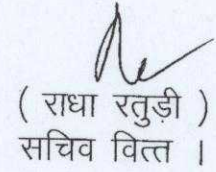 ( राधा रतुड़ी )
सचिव वित्त ।